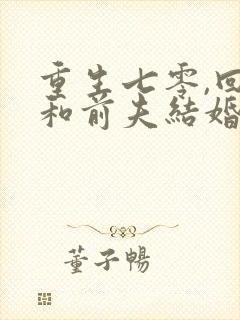 重生七零,回
和前夫結婚
董子暢